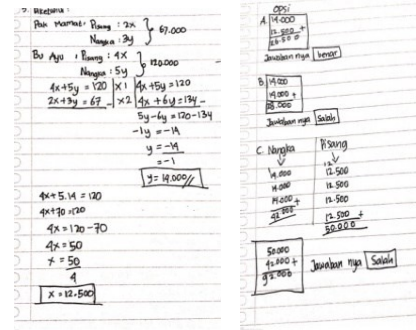 Diketahui :
Pak Mamat : Pisang : 2x
Nangka : 3y } 67.000
Bu Ayu : Pisang : 4x
Nangka : 5y } 120.000
4x+5y = 120 | x1 | 4x+5y = 120
2x+3y = 67 - | x2 | 4x + 6y = 134 -
5y-6y = 120-134
-1y = -14
y = -14
= -1
y = 14.000 //
4x+5.14 = 120
4x+70 = 120
4x = 120-70
4x = 50
x = 50
4
x = 12.500
opsi
A. 14.000
12.500 +
26.500
Jawaban nya benar
B. 14.000
14.000 +
28.000
Jawaban nya Salah
C. Nangka Pisang
14.000 12.500
14.000 12.500
14.000 + 12.500
42.000 12.500 +
50.000
50.000
42.000 +
92.000
Jawaban nya Salah